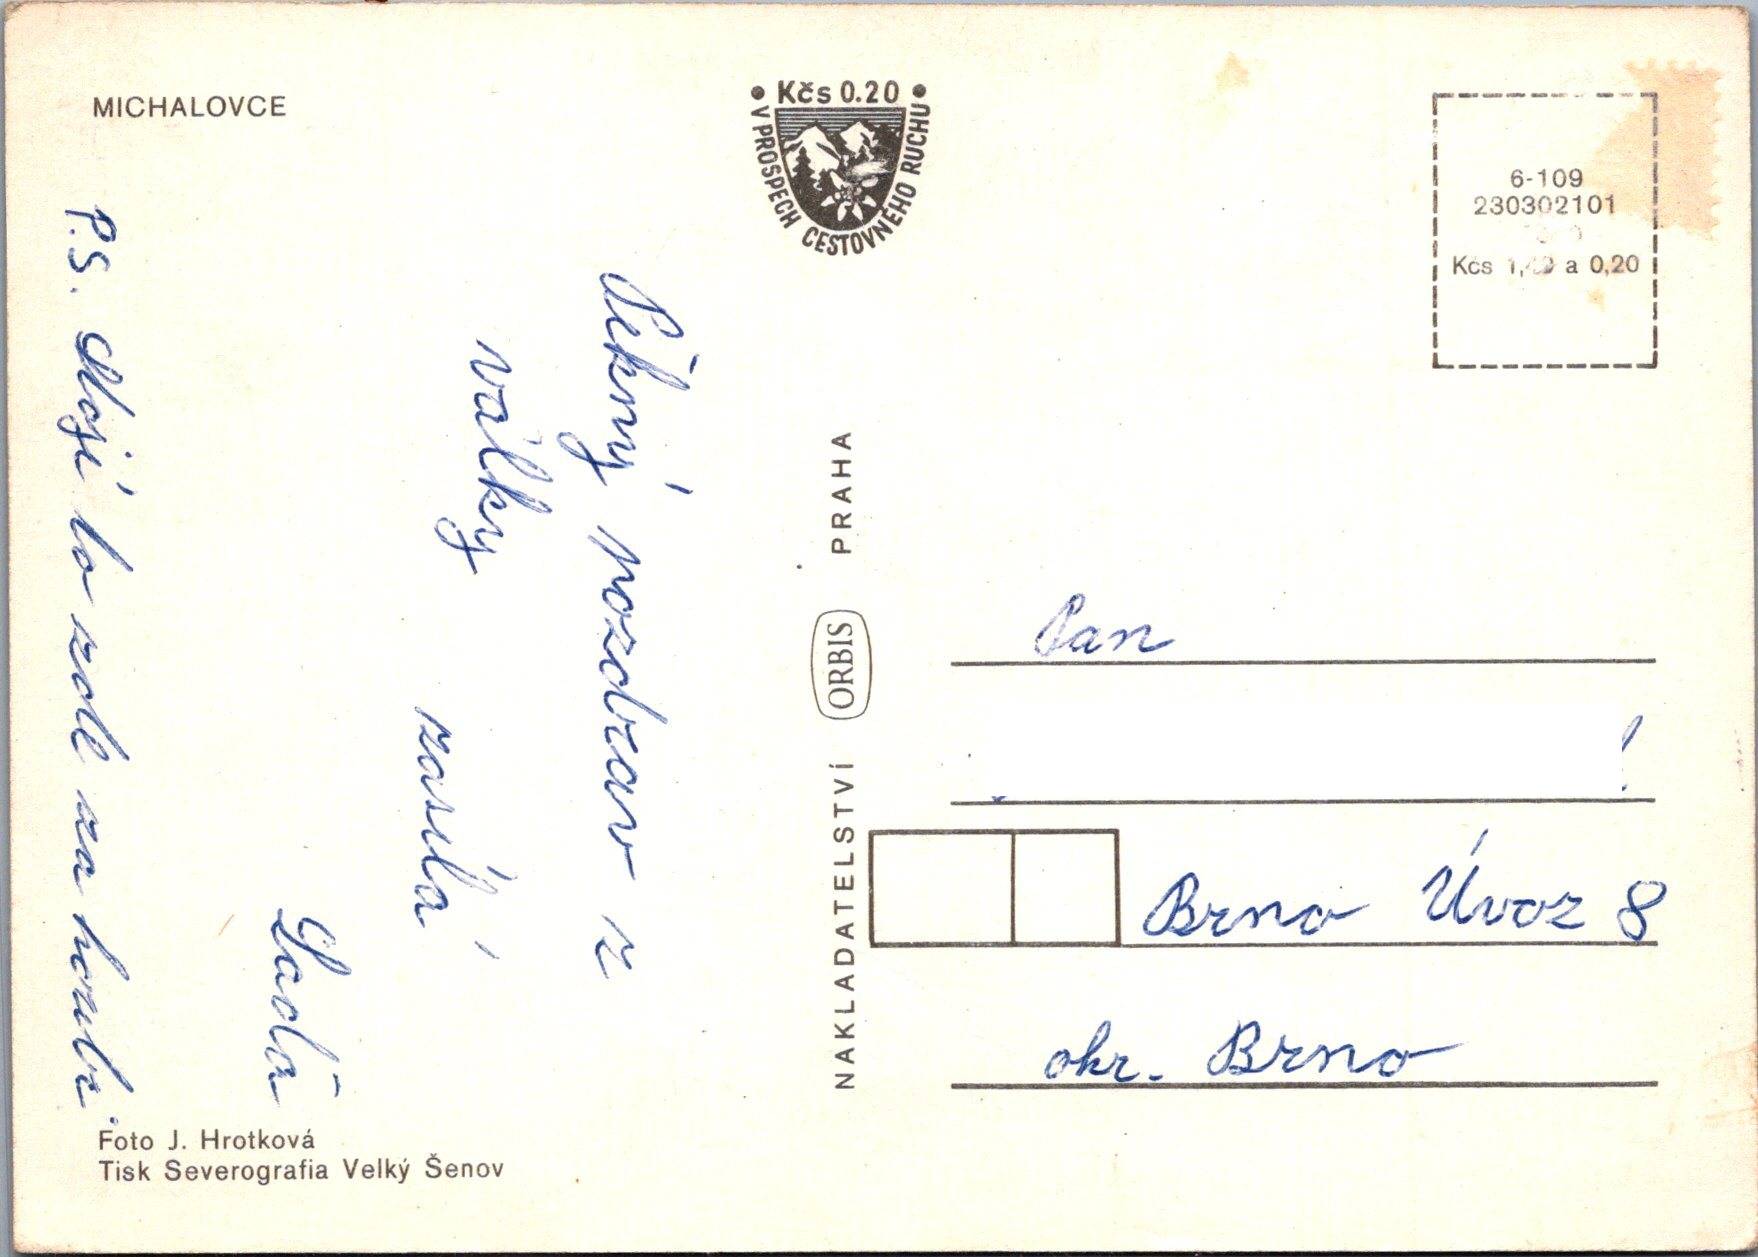 MICHALOVCE
• Kčs 0.20 •
V PROSPECH CESTOVNÉHO RUCHU
6-109
230302101
Kčs 1,40 a 0,20
Pěkný pozdrav z
války
zasílá
Laďa
P.S. Mají to zde za
NAKLADATELSTVÍ ORBIS PRAHA
Pan
Brno Úvoz 8
okr. Brno
Foto J. Hrotková
Tisk Severografia Velký Šenov